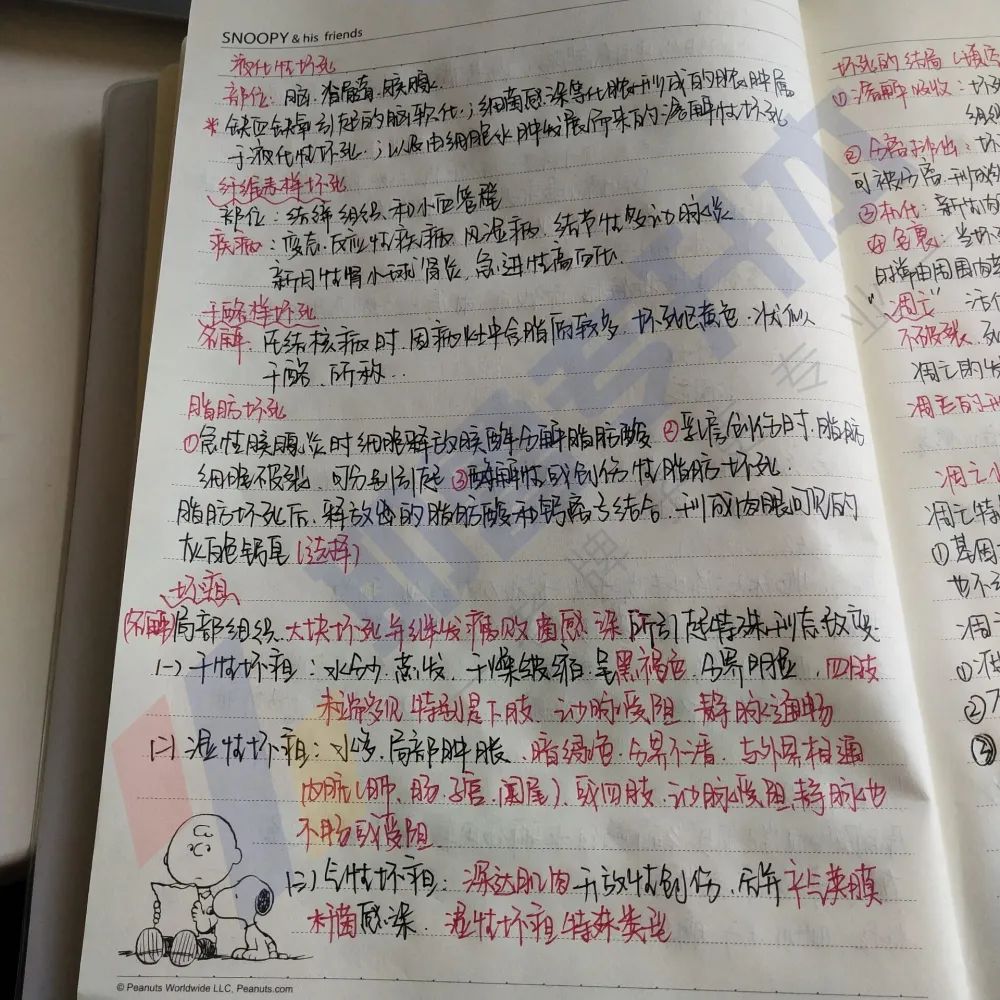 SNOOPY & his friends
液化性坏死
部位: 脑、脊髓、胰腺
* 缺血缺氧引起的脑软化；细菌感染等化脓形成的脓肿属
于液化性坏死；以及由细胞水肿发展而来的溶解性坏死
纤维素样坏死
部位: 结缔组织和小血管壁
疾病: 变态反应性疾病、风湿病、结节性多动脉炎
新月性肾小球肾炎、急进性高血压
干酪样坏死
名解: 在结核病时,因病灶中含脂质较多,坏死区黄色,状似
干酪、所称...
脂肪坏死
①急性胰腺炎时细胞释放胰酶分解脂肪酸 ②乳房创伤时,脂肪
细胞破裂,可分别引起 ③酶解性或创伤性脂肪坏死
脂肪坏死后,释放出的脂肪酸和钙离子结合,形成肉眼可见的
灰白色钙皂(选择)
坏疽
(名解)局部组织大块坏死并继发腐败菌感染所引起特殊形态改变
(一)干性坏疽: 水分蒸发、干燥皱缩呈黑褐色、分界明显、四肢
末端多见 特别是下肢、动脉受阻 静脉通畅
(二)湿性坏疽: 水多,局部肿胀、暗绿色、分界不清、与外界相通
内脏(肺、肠、子宫、阑尾)、或四肢、动脉受阻,静脉也
不畅或受阻
(三)气性坏疽: 深达肌肉 开放性创伤、合并产气荚膜
杆菌感染、湿性坏疽特殊类型
© Peanuts Worldwide LLC, Peanuts.com
坏死的结局(填
①溶解吸收: 坏
②分离排出: 坏
可被分离,形成
③机化: 新生肉
④包裹: 当坏
凋亡
不破裂
凋亡的
凋亡
凋亡特
①基因
也不
①
②
③